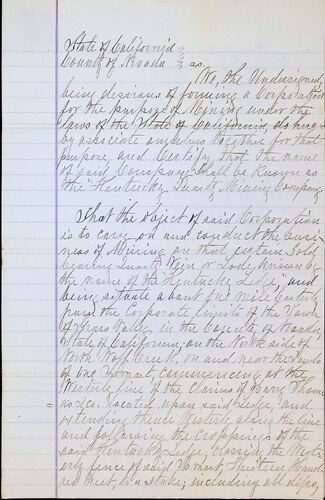 State of California
County of Nevada } ss
We, the Undersigned,
being desirous of forming a Corporation
for the purpose of Mining under the
laws of the State of California, do here
by associate ourselves together for that
purpose, and Certify, that the name
of said Company shall be known as
the "Kentucky Quartz Mining Company
That the object of said Corporation
is to carry on and conduct the busi
ness of Mining on that certain Gold
bearing Quartz Vein or Lode, known by
the name of the "Kentucky Ledge," and
being situate about one mile Easterly
from the Corporate limits of the Town
of Grass Valley, in the County of Nevada,
State of California, on the North side of
North Wolf Creek, on and near the Lands
of one commencing at the
Westerly line of the Claims of Thom
as & Co. located upon said Ledge, and
extending thence Westerly along the line
and following the Croppings of the
said Kentucky Ledge, crossing the West
erly fence of said Hun
red feet, to a stake; including all dips,